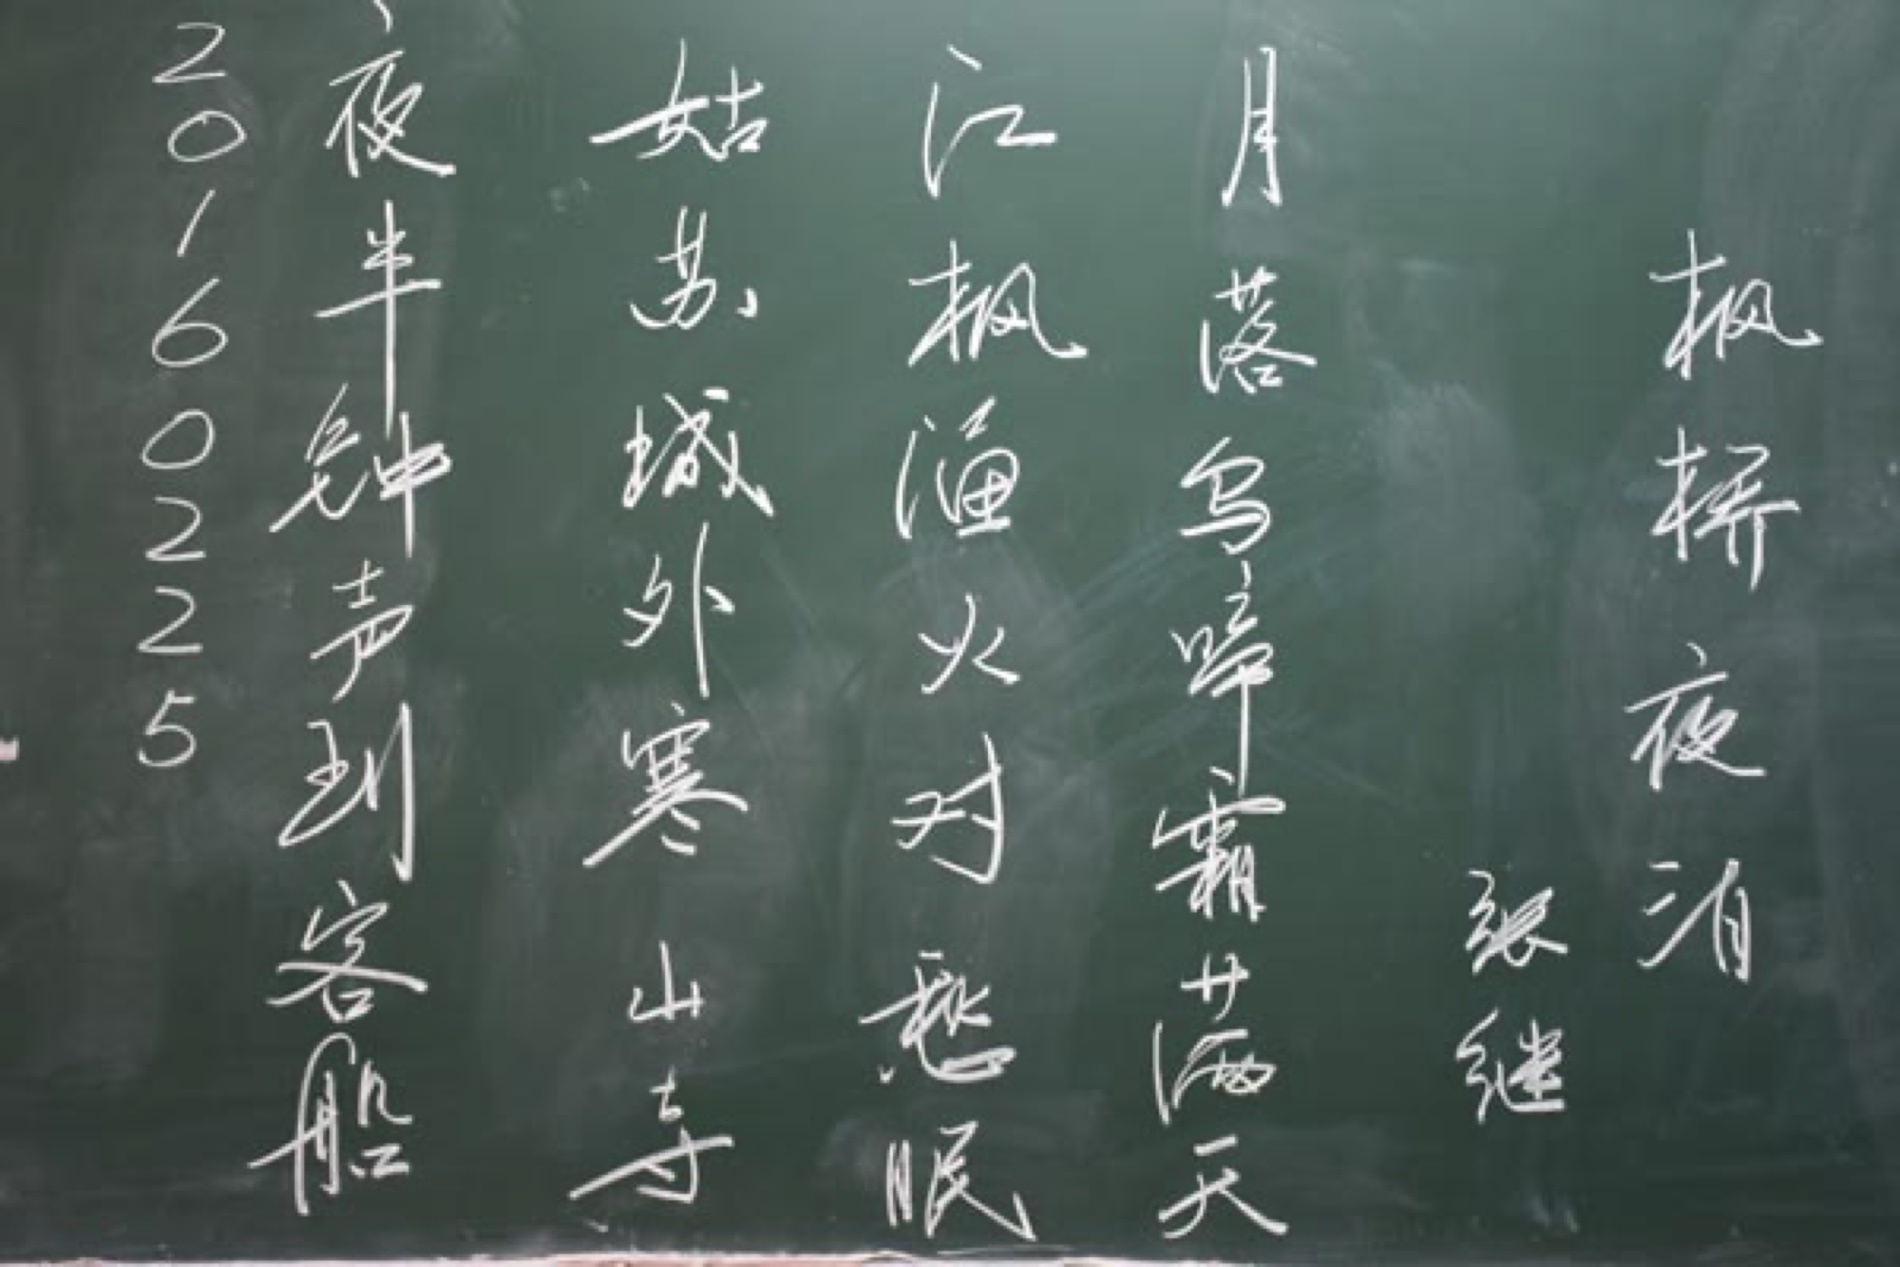 枫桥夜泊
张继
月落乌啼霜满天
江枫渔火对愁眠
姑苏城外寒山寺
夜半钟声到客船
20160225